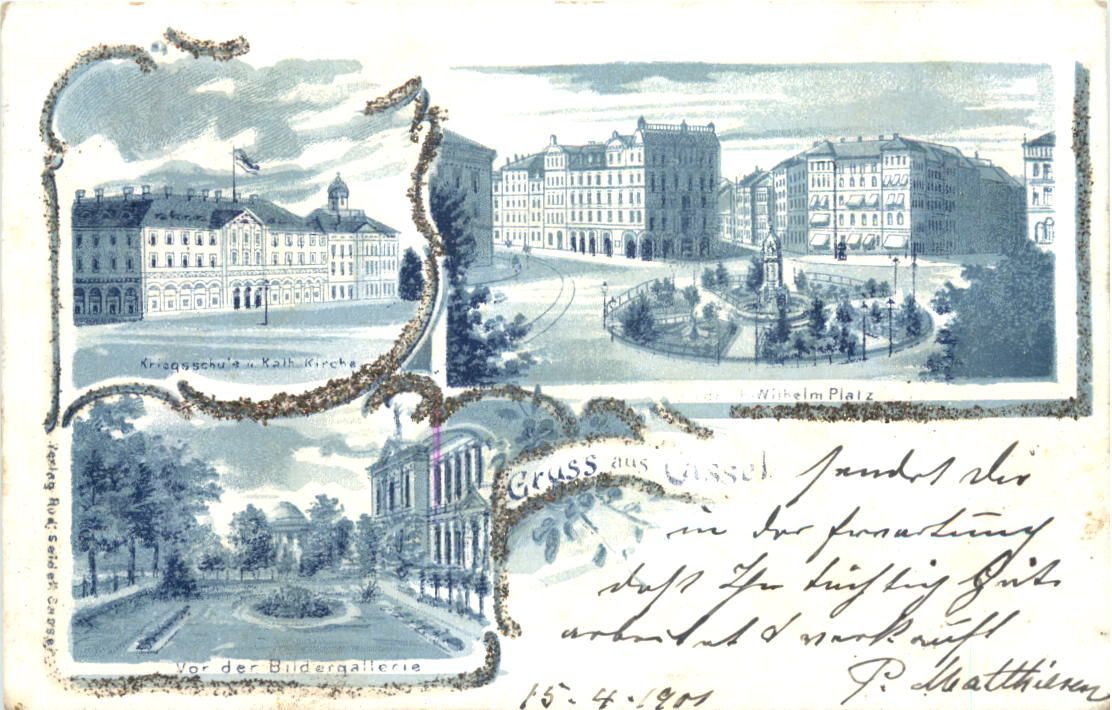 Kriegsschule u. Kath. Kirche
Wilhelm Platz
Gruss aus Cassel
sendet Dir
in der Erwartung
daß Ihr tüchtig Hüte
arbeitet & verkauft
P. Matthiesen
15.4.1901
Vor der Bildergallerie
Verlag Rud. Seidel Cassel